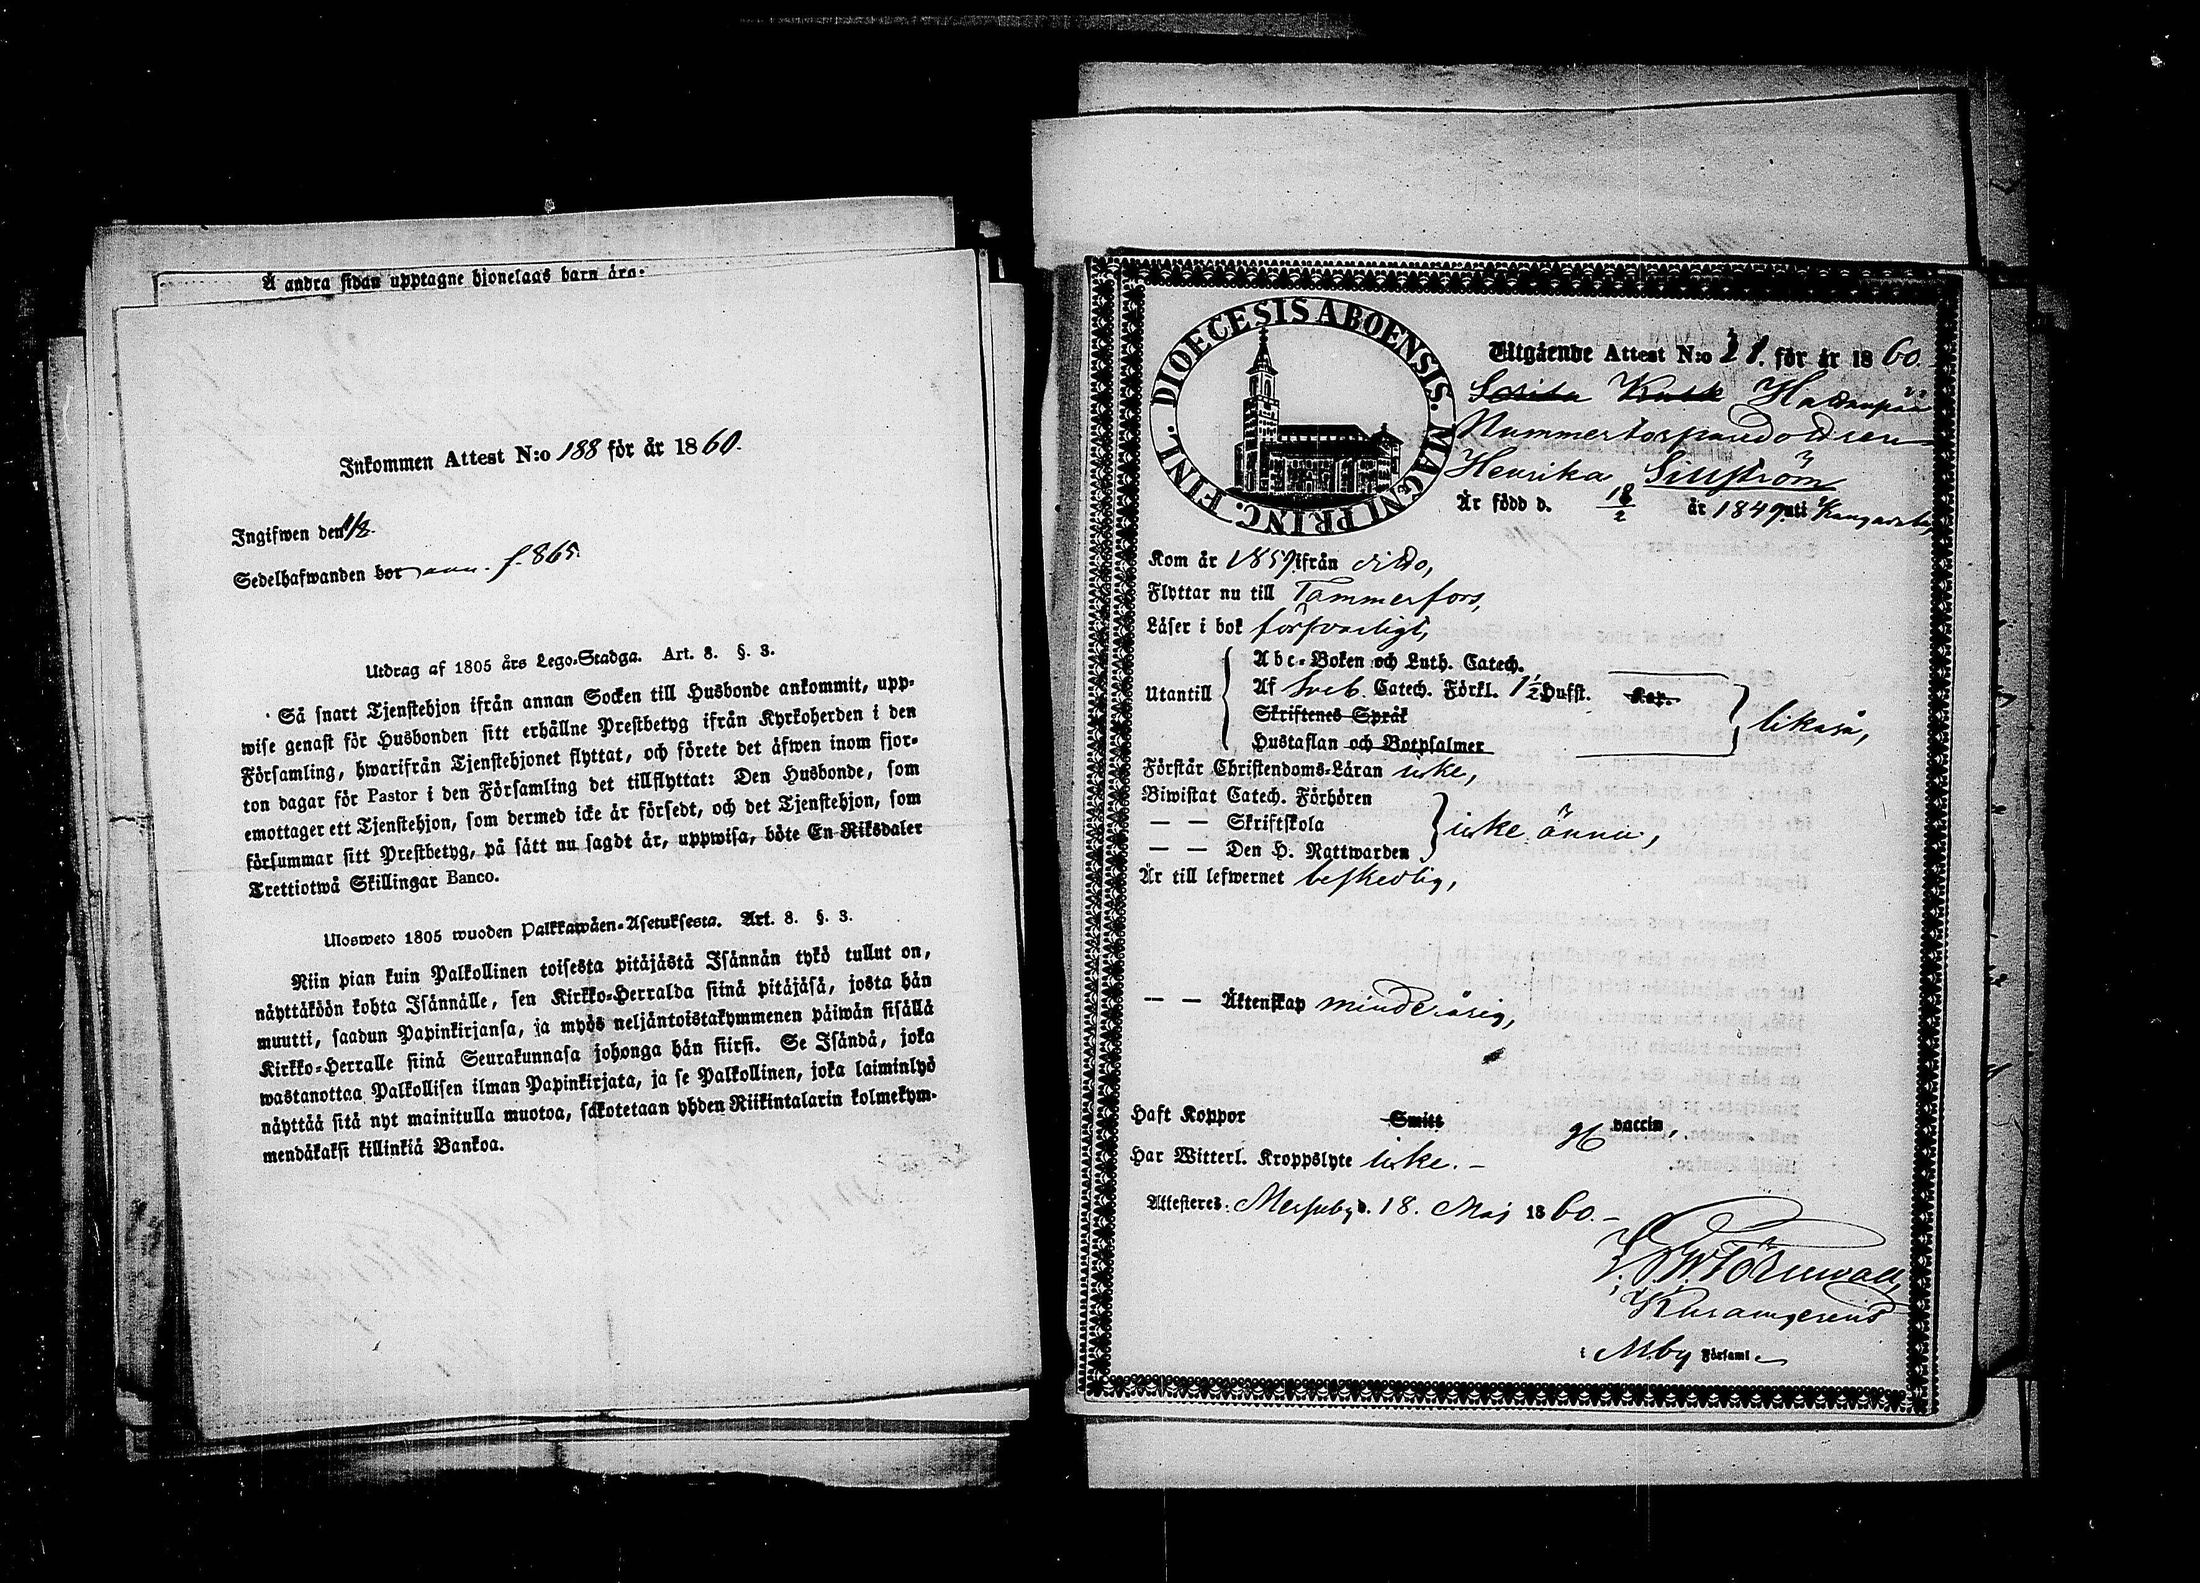 Å andra sidan upptagne hjonelags barn äro:
Inkommen Attest N:o 188 för år 1860.
Ingifwen den
Sedelhafwanden bor f. 865.
Utdrag af 1805 års Lego-Stadga. Art. 8. §. 3.
Så snart Tjenstehjon ifrån annan Socken till Husbonde ankommit, upp-
wise genast för Husbonden sitt erhållne Prestbetyg ifrån Kyrkoherden i den
Församling, hwarifrån Tjenstehjonet flyttat, och förete det äfwen inom fjor-
ton dagar för Pastor i den Församling det tillflyttat: Den Husbonde, som
emottager ett Tjenstehjon, som dermed icke är försedt, och det Tjenstehjon, som
försummar sitt Prestbetyg, på sätt nu sagdt är, uppwisa, böte En Riksdaler
Trettiotwå Skillingar Banco.
Ulosweto 1805 wuoden Palkkawäen-Asetuksesta. Art. 8. §. 3.
Niin pian kuin Palkollinen toisesta pitäjästä Isännän tykö tullut on,
näyttäköön kohta Isännälle, sen Kirkko-Herralda siinä pitäjäsä, josta hän
muutti, saadun Papinkirjansa, ja myös neljäntoistakymmenen päiwän sisällä
Kirkko-Herralle siinä Seurakunnasa johonga hän siirsi. Se Isändä, joka
wastanottaa Palkollisen ilman Papinkirjata, ja se Palkollinen, joka laiminlyö
näyttää sitä nyt mainitulla muotoa, sakotetaan yhden Riikintalarin kolmekym-
mendäkaksi killinkiä Bankoa.
DIOECESIS ABOENSIS. MAGNI PRINC. FINL.
Utgående Attest N:o 21. för år 1860.
Hatanpää
Nummertorparedottren
Henrika Sillström
Är född d. 18/2 år 1849 uti Kangasala,
Kom år 1859 ifrån dito,
Flyttar nu till Tammerfors,
Läser i bok försvarligt,
Abc-Boken och Luth. Catech.
Utantill Af Sveb. Catech. Förkl. 1 1/2 Hufst. Kap.
Skriftenes Språk
Hustaflan och Botpsalmer
likaså,
Förstår Christendoms-Läran icke,
Biwistat Catech. Förhören
— — Skriftskola icke ännu,
— — Den H. Nattwarden
Är till lefwernet beskedlig,
— — Äktenskap minderårig,
Haft Koppor Smitt vaccin,
Har Witterl. Kroppslyte icke. –
Attesteres: Messuby d. 18. Maj 1860. –
Törnwall,
i M:by Församl